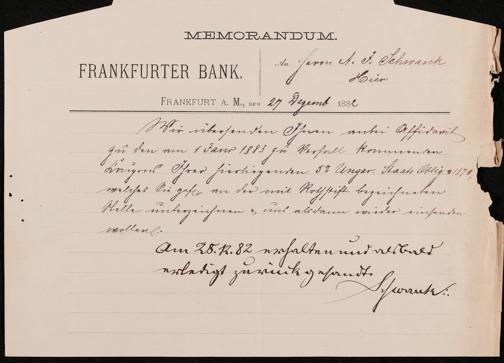 MEMORANDUM.
An Herrn A. F. Schwank
Hier
FRANKFURTER BANK.
FRANKFURT A. M., DEN 27 Dezemb 1882
Wir übersenden Ihnen anbei Affidavit
zu den am 1 Janr 1883 zu Verfall kommenden
Coupons Ihrer hierliegenden 5% Ungar. Staats Oblig.
welches Sie gefl. an der mit Rothstift bezeichneten
Stelle unterzeichnen & uns alsdann wieder einsenden
wollen.
Am 28.12.82 erhalten und alsbald
erledigt zurückgesandt.
Schwank.